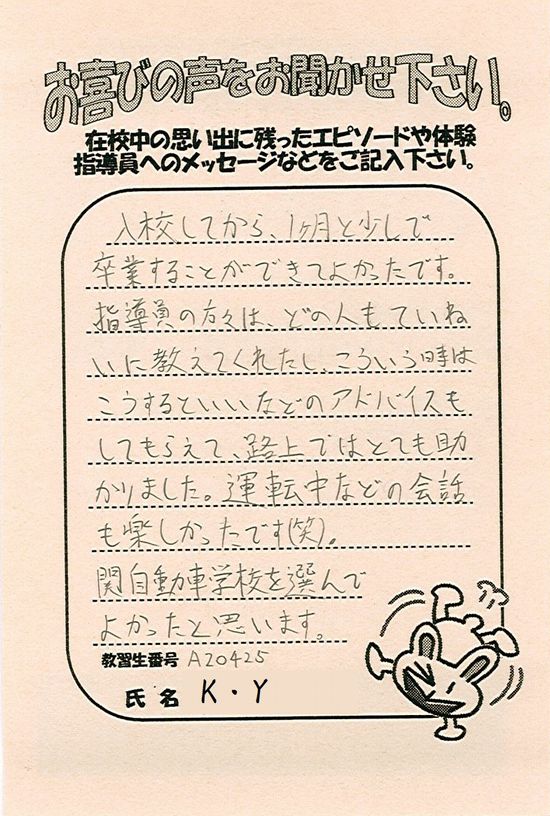 お喜びの声をお聞かせ下さい。
在校中の思い出に残ったエピソードや体験
指導員へのメッセージなどをご記入下さい。
入校してから、1ヶ月と少しで
卒業することができてよかったです。
指導員の方々は、どの人もていね
いに教えてくれたし、こういう時は
こうするといいなどのアドバイスも
してもらえて、路上ではとても助
かりました。運転中などの会話
も楽しかったです(笑)。
関自動車学校を選んで
よかったと思います。
教習生番号 A20425
氏名 K・Y